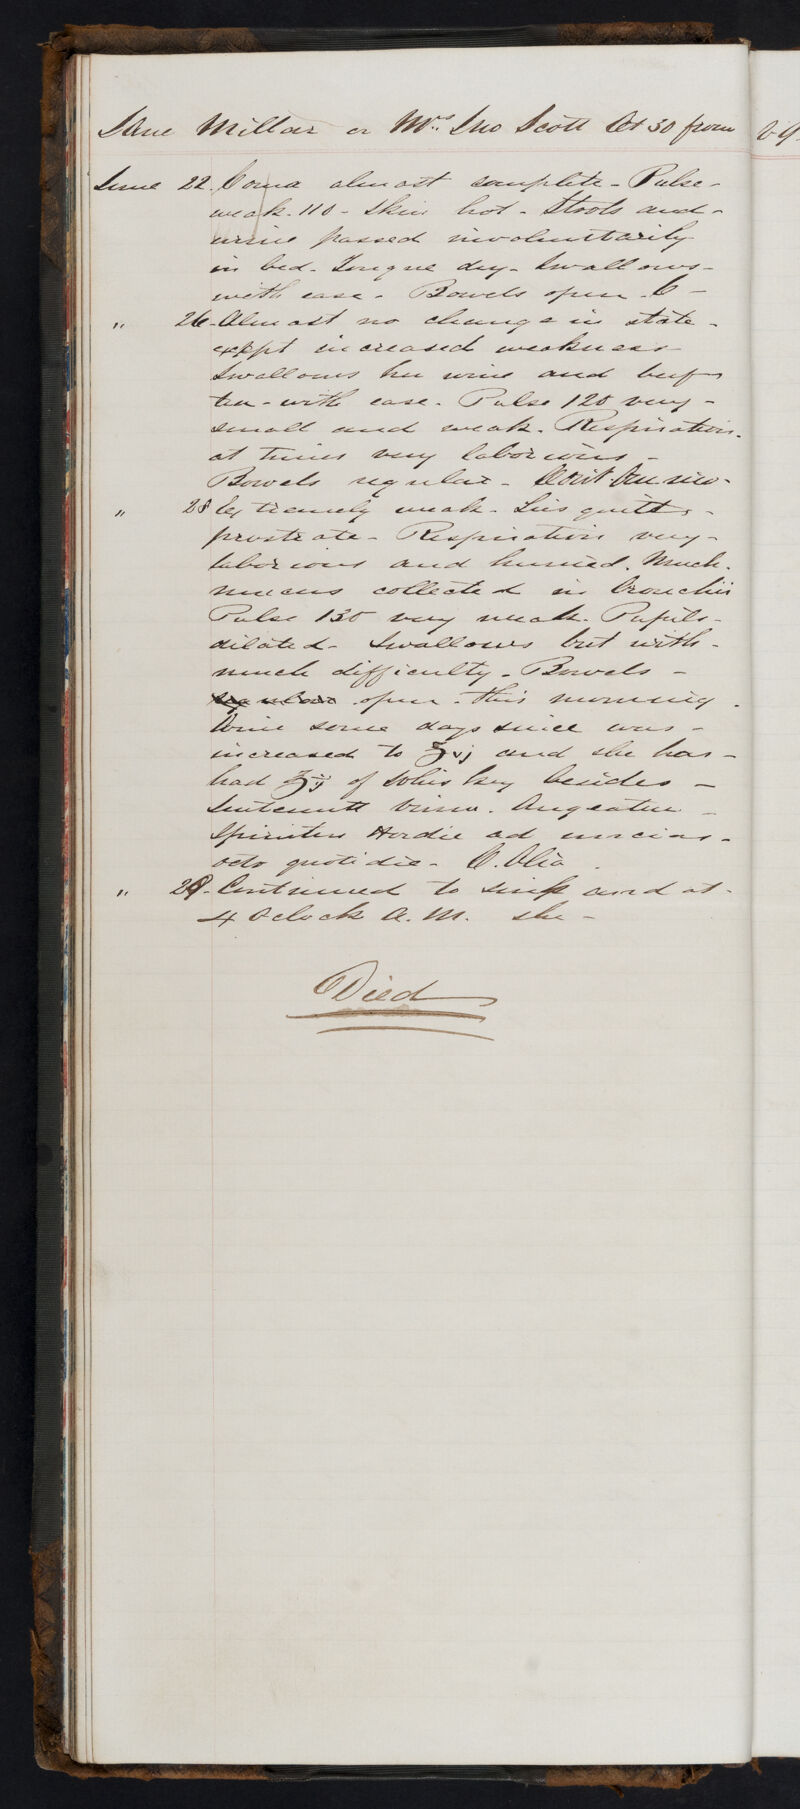 Jane Millar or Mrs Jno Scott Aet 30 from
June 22. Coma almost complete - Pulse -
weak. 110 - Skin hot - Stools and -
urine passed involuntarily
in bed - Tongue dry - Swallows -
with ease - Bowels open -
" 26. Almost no change in state -
except increased weakness
Swallows her wine and beef
tea - with ease - Pulse 120 very -
small and weak. Respiration -
at times very laborious -
Bowels regular -
" 28 Extremely weak - Lies quite -
prostrate - Respiration very -
laborious and hurried. Much -
mucus collected in bronchii
Pulse 130 very weak. Pupils -
dilated - Swallows but with -
much difficulty - Bowels -
regular open - this morning.
Wine some days since was -
increased to ℥vj and she has -
had ℥ij of Whiskey besides -
Vinum. Augeatur -
Spiritus Hordie ad uncias -
octo quotidie - C. Alia.
" 29. Continued to sink and at -
4 Oclock A.M. she -
Died